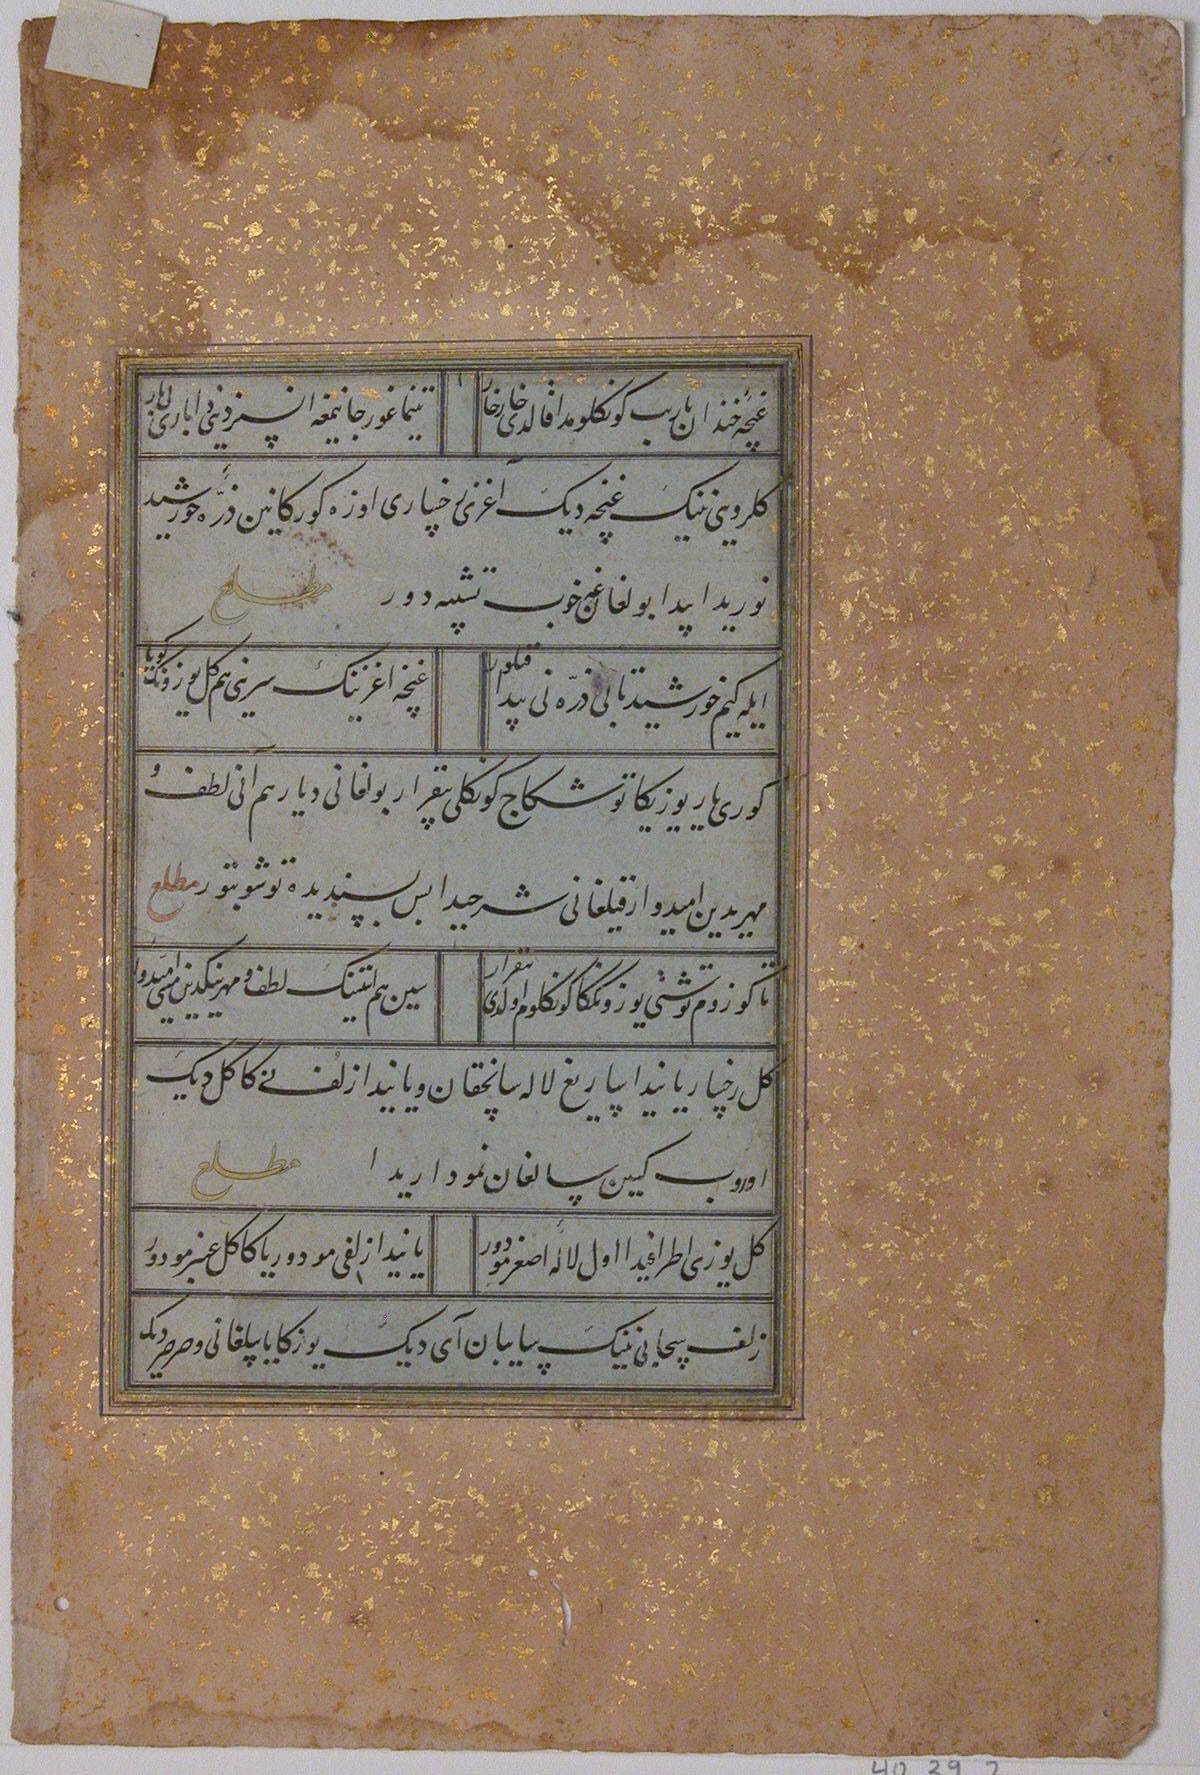 غنچهٔ خندان یارب کونکلومدا قالدی خار خار
تینماغور جانیمغه انسیز دیدی
کلرویی نینک غنچه دیک آغزی رخساری اوزه کورکانین ذرّه خورشید
نوریدا پیدا بولغان غه خوب تشبیه دور مطلع
ایله کیم خورشید تابانی ذرّه نی پیدا قیلور
غنچه اغزینک سرینی هم کل یوزونک کویا
کوزی یار یوزیکا توشکاج کونکلی بیقرار بولغانی دیار هم آنی لطف و
مهریدین امیدوار قیلغانی شرحیدا بس پسندیده توشوبتور مطلع
تا کوزوم توشتی یوزونککا کونکلوم اولدی بیقرار
سین هم ایتینک لطف و مهرینکدین امیدوار
کل رخسار یانیدا ساریغ لاله سانچقان و یانیدا زلف نی کاکل دیک
اوروب کیین سالغان نموداریدا مطلع
کل یوزی اطرافیدا اول لالهٔ اصغر مودور
یانیدا زلفی مودور یا کاکل عنبر مودور
زلف سایبان آی دیک یوزکا یاپیلغانی و صرصر دیک
40.39.2